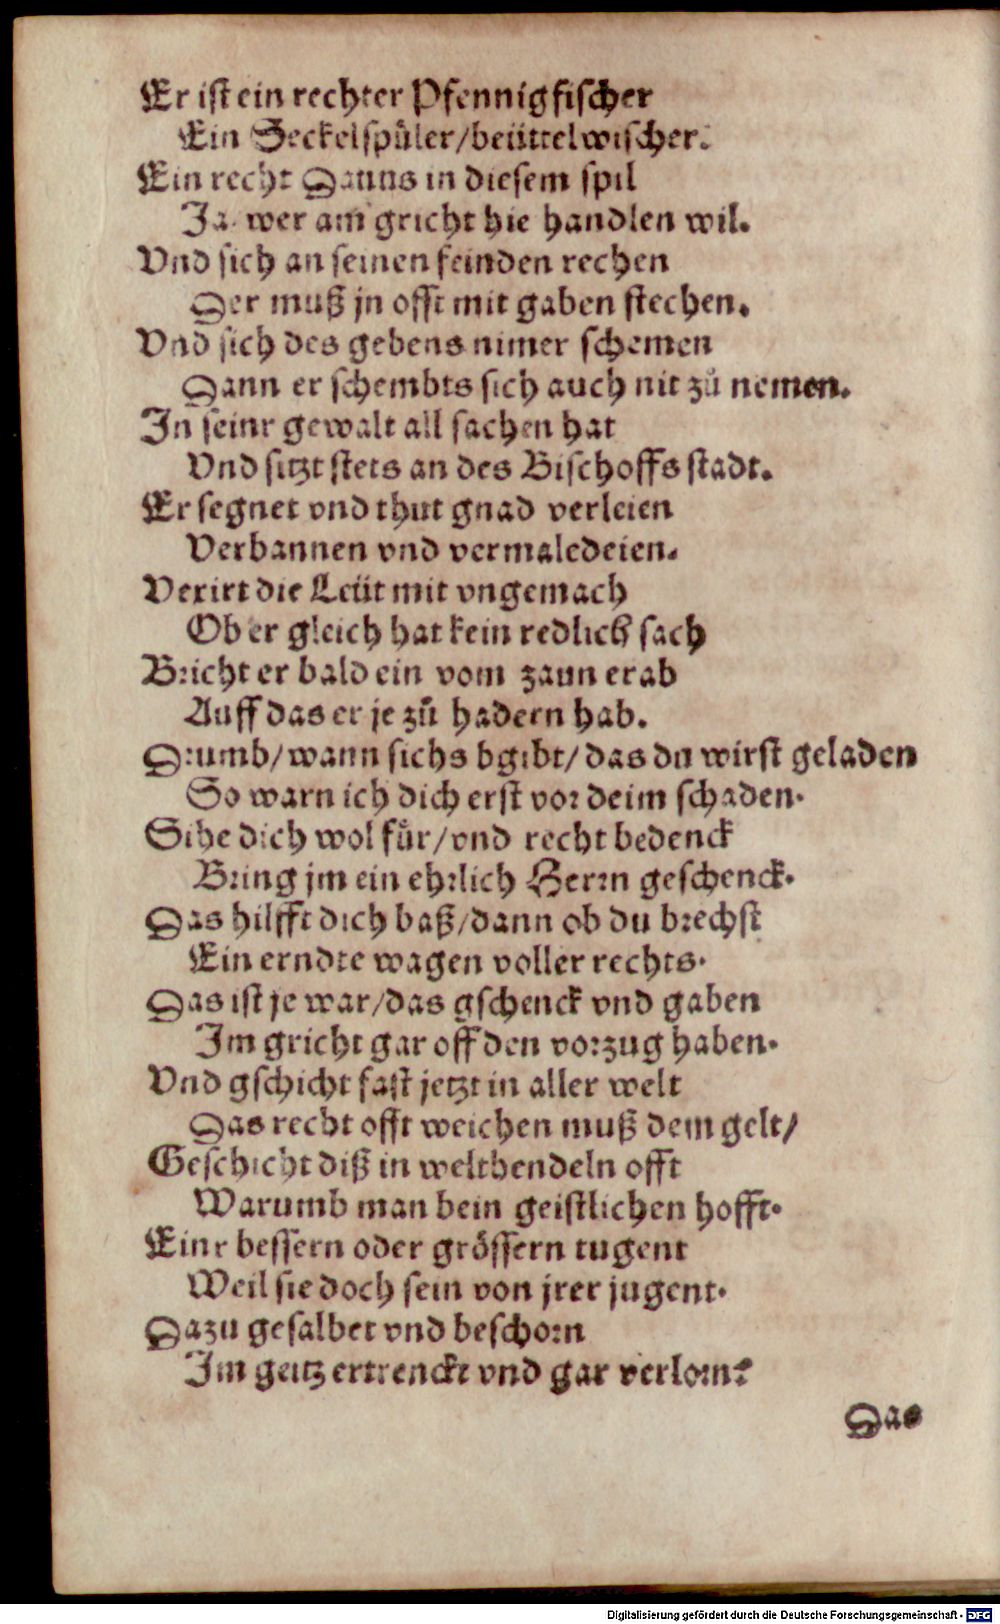 Er ist ein rechter Pfennigfischer
Ein Seckelspůler/beüttelwischer.
Ein recht Dauus in diesem spil
Ja wer am gricht hie handlen wil.
Vnd sich an seinen feinden rechen
Der muß jn offt mit gaben stechen.
Vnd sich des gebens nimer schemen
Dann er schembts sich auch nit zů nemen.
In seinr gewalt all sachen hat
Vnd sitzt stets an des Bischoffs stadt.
Er segnet vnd thut gnad verleien
Verbannen vnd vermaledeien.
Vexirt die Leüt mit vngemach
Ob er gleich hat kein redlich sach
Bricht er bald ein vom zaun erab
Auff das er je zů hadern hab.
Drumb/wann sichs bgibt/das du wirst geladen
So warn ich dich erst vor deim schaden.
Sihe dich wol fůr/vnd recht bedenck
Bring jm ein ehrlich Herrn geschenck.
Das hilfft dich baß/dann ob du brechst
Ein erndte wagen voller rechts.
Das ist je war/das gschenck vnd gaben
Im gricht gar off den vorzug haben.
Vnd gschicht fast jetzt in aller welt
Das recht offt weichen muß dem gelt/
Geschicht diß in welthendeln offt
Warumb man bein geistlichen hofft.
Einr bessern oder grössern tugent
Weil sie doch sein von jrer jugent.
Dazu gesalbet vnd beschorn
Im geitz ertrenckt vnd gar verlorn?
Das
Digitalisierung gefördert durch die Deutsche Forschungsgemeinschaft - DFG